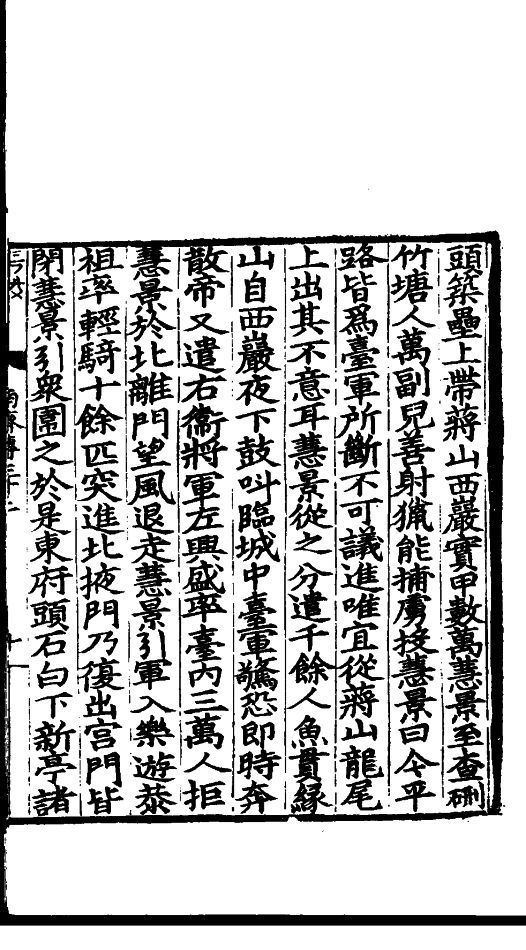 頭築壘上帶蔣山西巖實甲數萬慧景至查硎
竹塘人萬副兒善射獵能捕虜投慧景曰今平
路皆爲臺軍所斷不可議進唯宜從蔣山龍尾
上出其不意耳慧景從之分遣千餘人魚貫緣
山自西巖夜下鼓叫臨城中臺軍驚恐即時奔
散帝又遣右衞將軍左興盛率臺內三萬人拒
慧景於北離門望風退走慧景引軍入樂遊恭
祖率輕騎十餘匹突進北掖門乃復出宮門皆
閉慧景引衆圍之於是東府頭石白下新亭諸
南齊傳三十二
十一